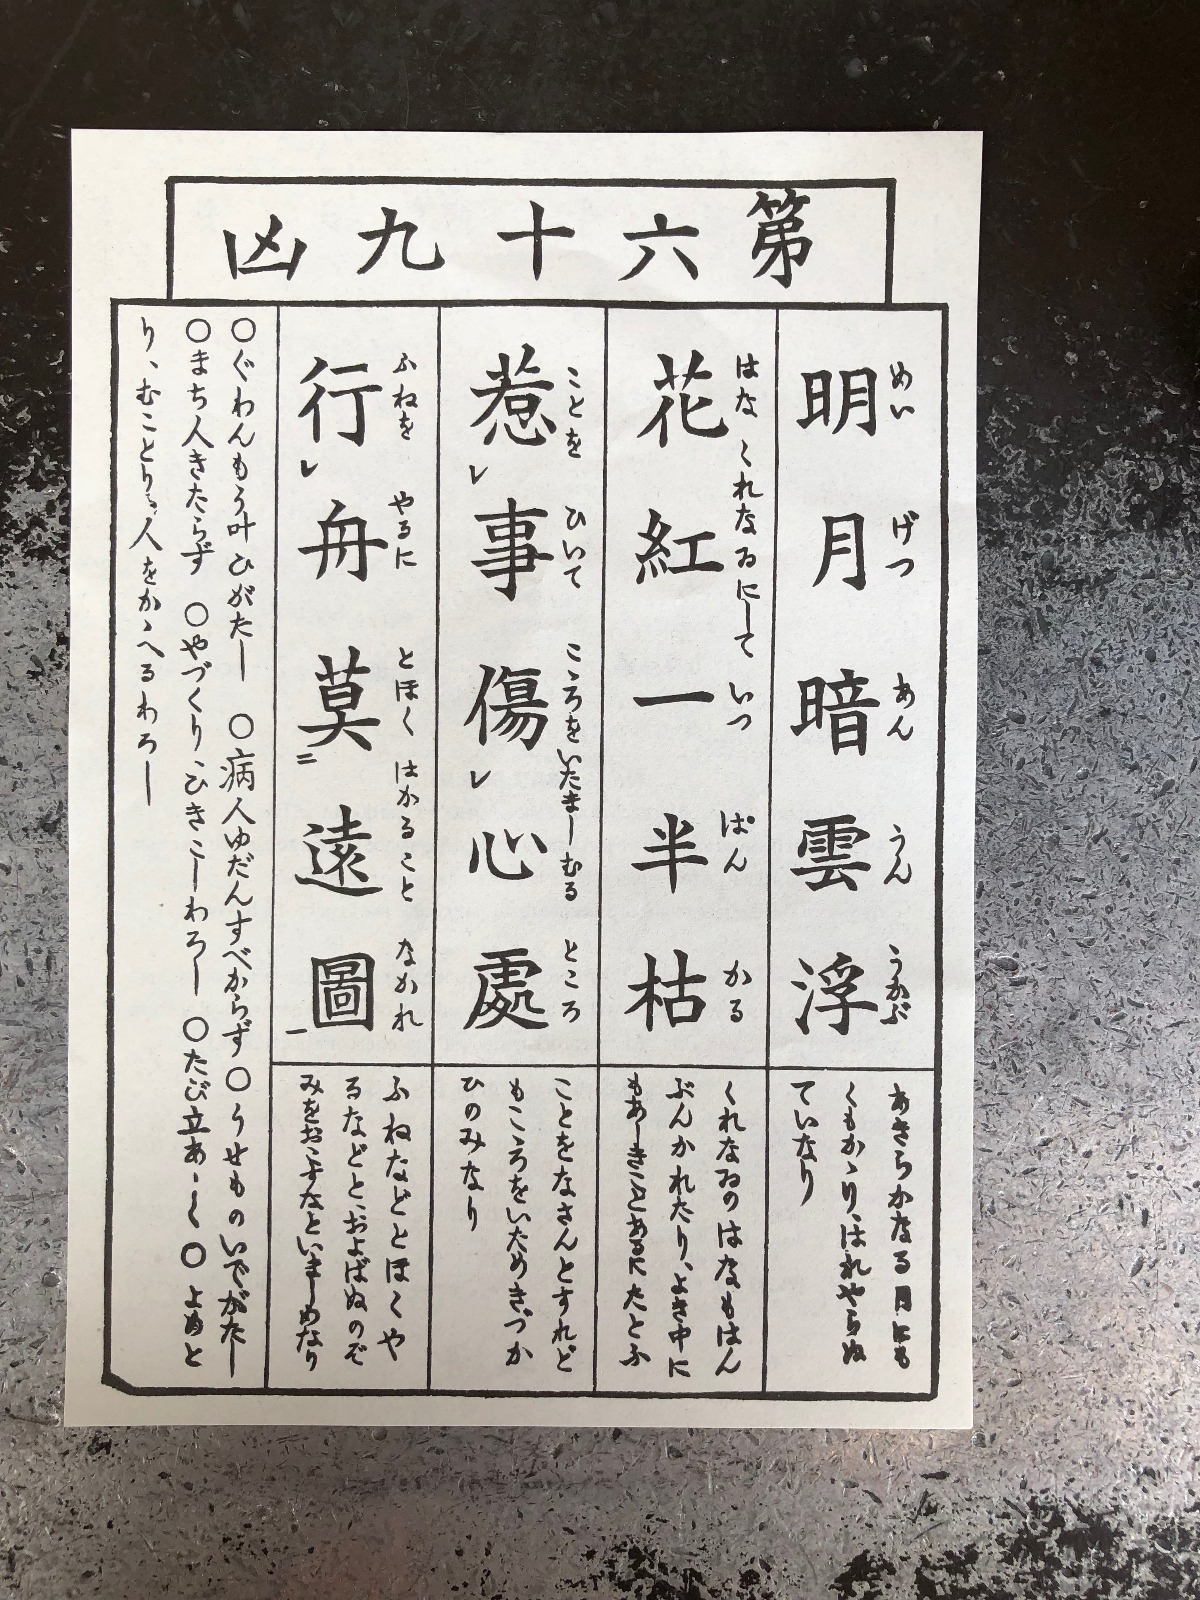 第六十九凶
めい げつ あん うん うかぶ
明月暗雲浮
はな くれなゐにして いつ ぱん かる
花紅一半枯
ことを ひいて こゝろをいたましむる ところ
惹レ事傷レ心處
ふねを やるに とほく はかること なかれ
行レ舟莫二遠圖一
あきらかなる月にも
くもかゝり、はれやらぬ
ていなり
くれなゐのはなもはん
ぶんかれたり、よき中に
もあしきことあるにたとふ
ことをなさんとすれど
もこころをいためきづか
ひのみなり
ふねなどとほくや
るなどと、およばぬのぞ
みをおこすなといましめなり
〇ぐわんもう叶ひがたし 〇病人ゆだんすべからず 〇うせものいでがたし
〇まち人きたらず 〇やづくり、ひきこしわろし 〇たび立あしく 〇よめと
り、むことり、人をかゝへるわろし